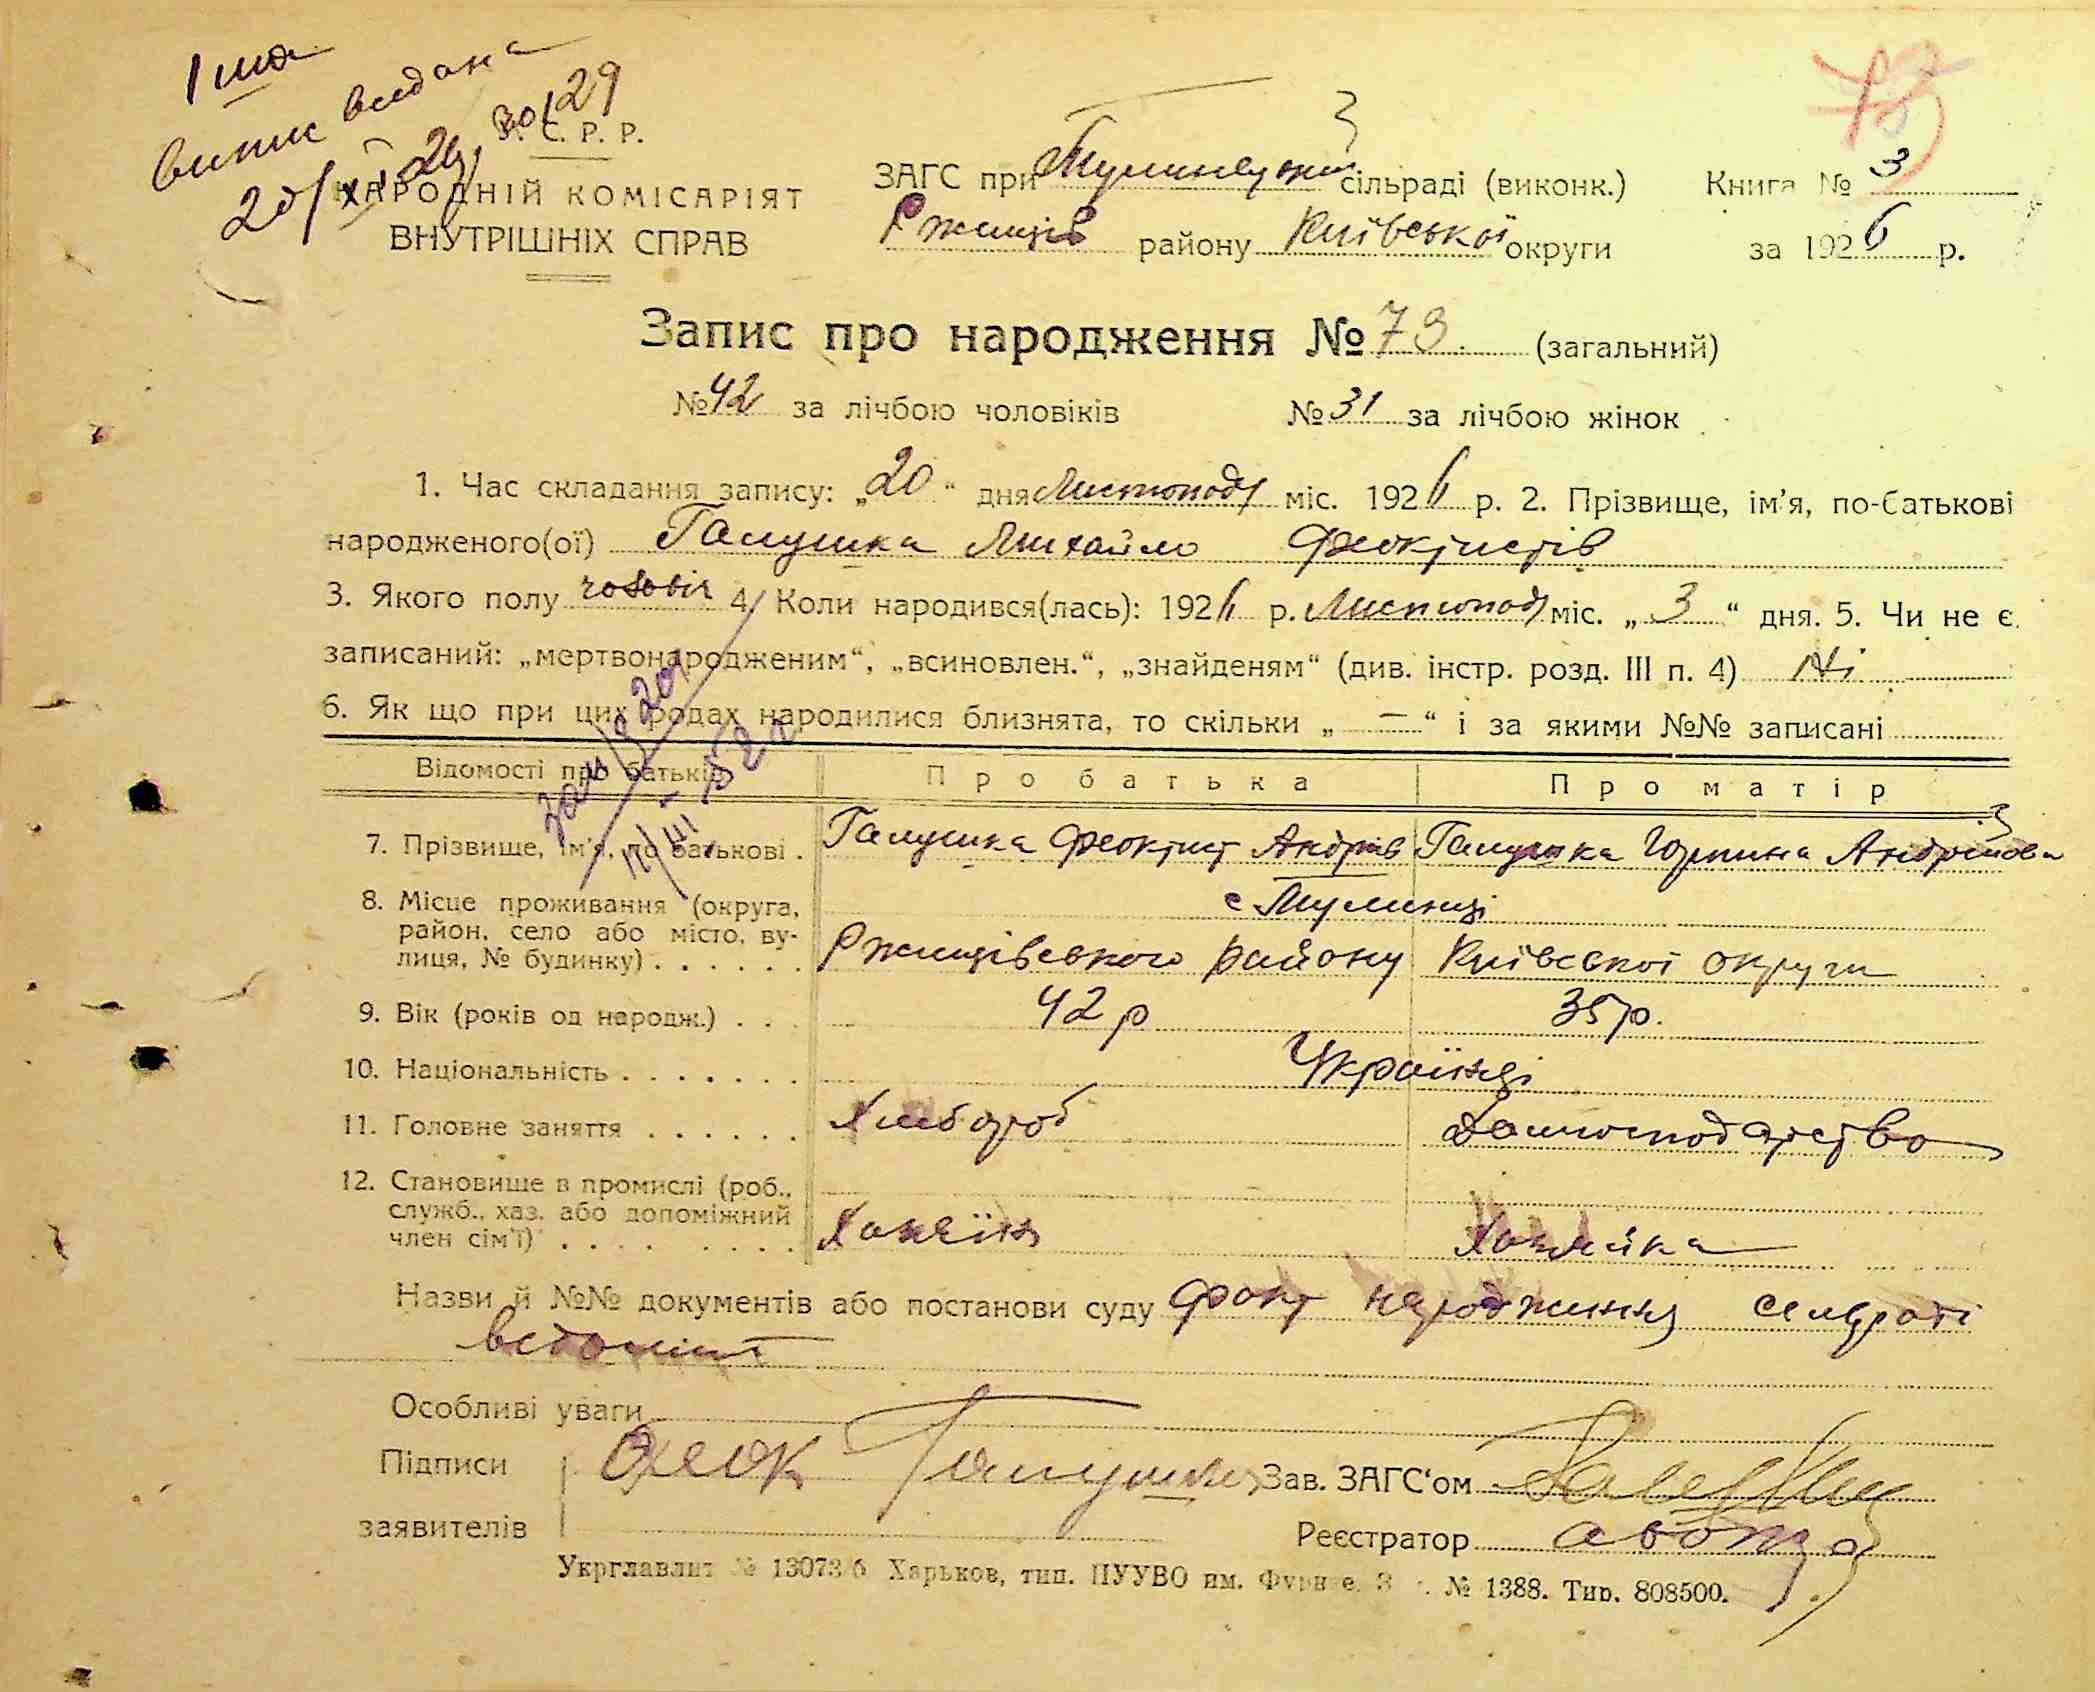 I шт
випис видана
20/XI 26, 30/29
У. С. Р. Р.
НАРОДНІЙ КОМІСАРІЯТ
ВНУТРІШНІХ СПРАВ
73
ЗАГС при Тулинецької сільраді (виконк.) Книга № 3
Ржищів району Київської округи за 1926 р.
Запис про народження № 73 (загальний)
№ 42 за лічбою чоловіків № 31 за лічбою жінок
1. Час складання запису: „20“ дня Листопада міс. 1926 р. 2. Прізвище, ім'я, по-батькові
народженого(ої) Галушка Михайло Феоктистів
3. Якого полу чоловіч 4. Коли народився(лась): 1926 р. Листопада міс. „3“ дня. 5. Чи не є
записаний: „мертвонародженим“, „всиновлен.“, „знайденям“ (див. інстр. розд. III п. 4) Ні
6. Як що при цих родах народилися близнята, то скільки „—“ і за якими №№ записані
Відомості про батьків Про батька Про матір
7. Прізвище, ім'я, по батькові . Галушка Феоктист Андріїв Галушка Юрпина Андріївова
8. Місце проживання (округа, с Тулинці
район, село або місто, ву-
лиця, № будинку) . . . . . . Ржищівського району Київської округи
9. Вік (років од народж.) . . . 42 р 35 р.
10. Національність . . . . . . . Українці
11. Головне заняття . . . . . . Хлібороб Домогосподарство
12. Становище в промислі (роб.,
служб., хаз. або допоміжний
член сім'ї) . . . . . . . . Хазяїн Хазяйка
Назви й №№ документів або постанови суду Факт народження сельраді
відомий
Особливі уваги
Підписи Феок Галушка Зав. ЗАГС'ом
заявителів Реєстратор
Укрглавлит № 13073/б Харьков, тип. ПУУВО им. Фрунзе. З. № 1388. Тир. 808500.